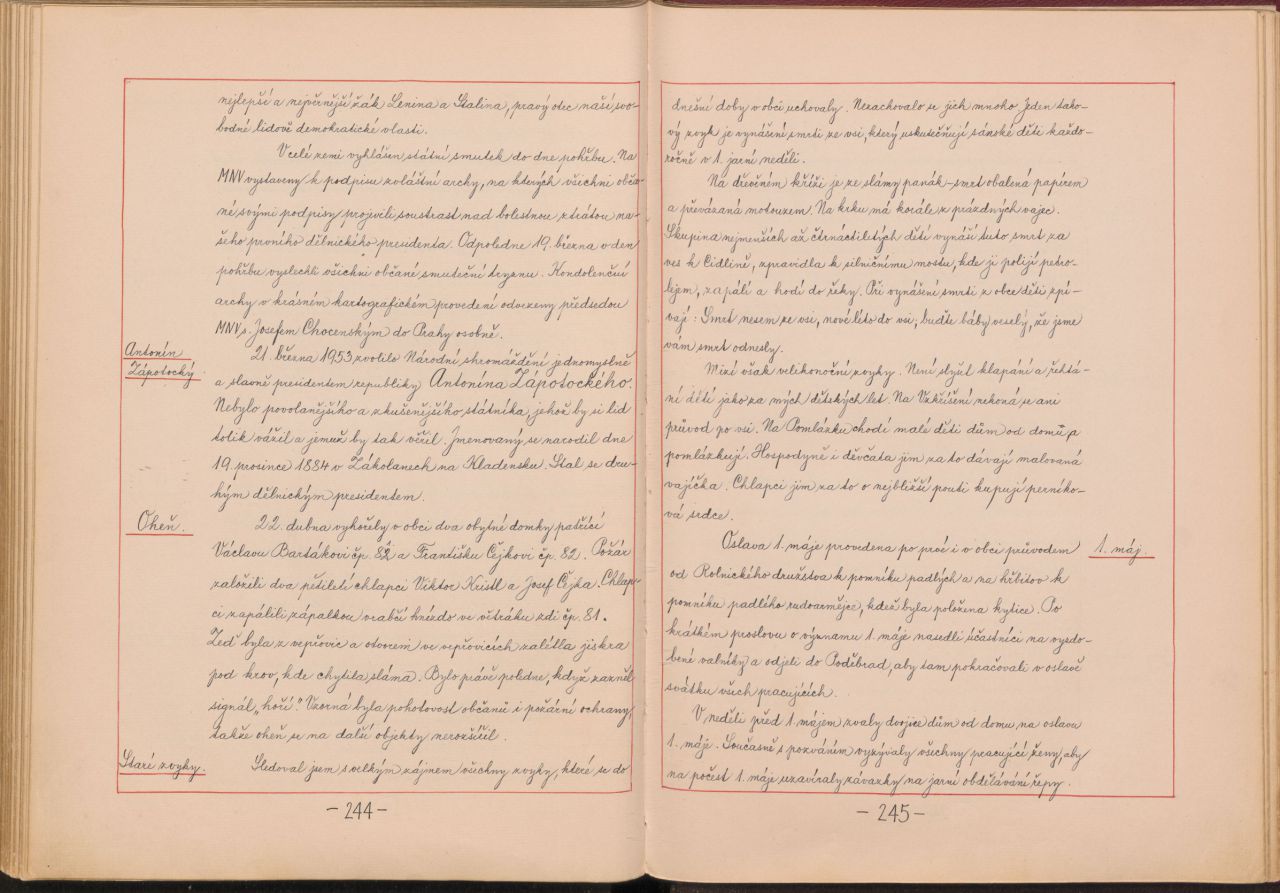 nejlepší a nejvěrnější žák Lenina a Stalina, pravý otec naší svo-
bodné lidově demokratické vlasti.
V celé zemi vyhlášen státní smutek do dne pohřbu. Na
MNV vystaveny k podpisu zvláštní archy, na kterých všichni obča-
né svými podpisy projevili soustrast nad bolestnou ztrátou na-
šeho prvního dělnického presidenta. Odpoledne 19. března v den
pohřbu vyslechli všichni občané smuteční tryznu. Kondolenční
archy v krásném kartografickém provedení odvezeny předsedou
MNV s. Josefem Chocenským do Prahy osobně.
Antonín
Zápotocký
21. března 1953 zvolilo Národní shromáždění jednomyslně
a slavně presidentem republiky Antonína Zápotockého.
Nebylo povolanějšího a zkušenějšího státníka, jehož by si lid
tolik vážil a jemuž by tak věřil. Jmenovaný se narodil dne
19. prosince 1884 v Zákolanech na Kladensku. Stal se dru-
hým dělnickým presidentem.
Oheň.
22. dubna vyhořely v obci dva obytné domky patřící
Václavu Bartákovi čp. 82 a Františku Čejkovi čp. 82. Požár
založili dva pětiletí chlapci Viktor Kristl a Josef Čejka. Chlap-
ci zapálili zápalkou vrabčí hnízdo ve větráku zdi čp. 81.
Zeď byla z vepřovic a otvorem ve vepřovicích zalétla jiskra
pod krov, kde chytila sláma. Bylo právě poledne, když zazněl
signál „hoří". Vzorná byla pohotovost občanů i požární ochrany,
takže oheň se na další objekty nerozšířil.
Staré zvyky.
Sledoval jsem s velkým zájmem všechny zvyky, které se do
-244-
dnešní doby v obci uchovaly. Nezachovalo se jich mnoho. Jeden tako-
vý zvyk je vynášení smrti ze vsi, který uskutečňují sánské děti každo-
ročně v 1. jarní neděli.
Na dřevěném kříži je ze slámy panák-smrt obalená papírem
a převázaná motouzem. Na krku má korále z prázdných vajec.
Skupina nejmenších až čtrnáctiletých dětí vynáší tuto smrt za
ves k Cidlině, zpravidla k silničnímu mostu, kde ji polijí petro-
lejem, zapálí a hodí do řeky. Při vynášení smrti z obce děti zpí-
vají: Smrt nesem ze vsi, nové léto do vsi, buďte báby veselý, že jsme
vám smrt odnesly.
Mizí však velikonoční zvyky. Není slyšet klapání a řehtá-
ní dětí jako za mých dětských let. Na Vzkříšení nekoná se ani
průvod po vsi. Na Pomlázku chodí malé děti dům od domu a
pomlázkují. Hospodyně i děvčata jim za to dávají malovaná
vajíčka. Chlapci jim za to o nejbližší pouti kupují perníko-
vá srdce.
Oslava 1. máje provedena po prvé i v obci průvodem
1. máj.
od Rolnického družstva k pomníku padlých a na hřbitov k
pomníku padlého rudoarmějce, kdež byla položena kytice. Po
krátkém proslovu o významu 1. máje nasedli účastníci na vyzdo-
bené valníky a odjeli do Poděbrad, aby tam pokračovali v oslavě
svátku všech pracujících.
V neděli před 1. májem zvaly dvojice dům od domu na oslavu
1. máje. Současně s pozváním vyzývaly všechny pracující ženy, aby
na počest 1. máje uzavíraly závazky na jarní obdělávání řepy.
-245-